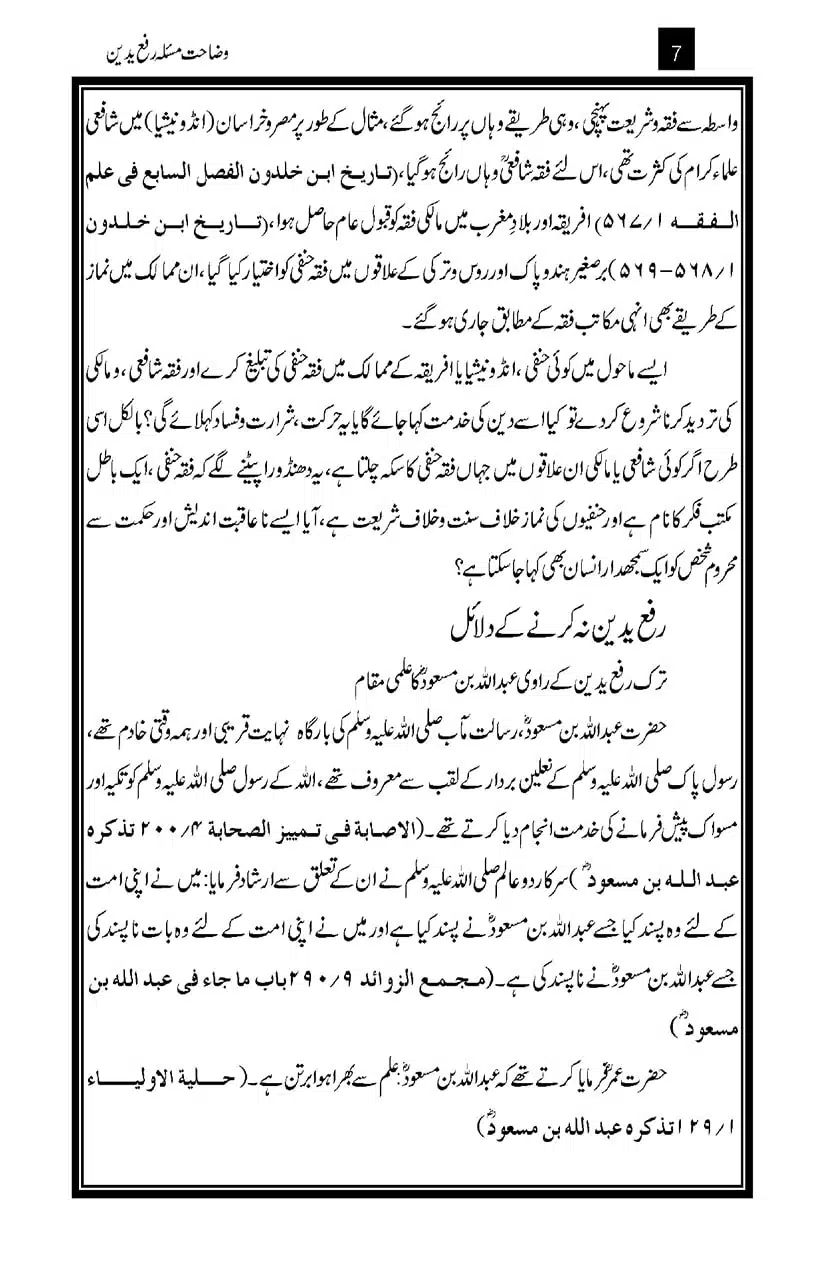 وضاحت مسئلہ رفع یدین
7
واسطہ سے فقہ و شریعت پہنچی، وہی طریقے وہاں پر رائج ہو گئے، مثال کے طور پر مصر و خراسان (انڈونیشیا) میں شافعی
علماء کرام کی کثرت تھی، اس لئے فقہ شافعیؒ وہاں رائج ہو گیا، (تاریخ ابن خلدون الفصل السابع فی علم
الفقہ ۱/۵۶۷) افریقہ اور بلادِ مغرب میں مالکی فقہ کو قبول عام حاصل ہوا، (تاریخ ابن خلدون
۱/۵۶۸-۵۶۹) برصغیر ہند و پاک اور روس و ترکی کے علاقوں میں فقہ حنفی کو اختیار کیا گیا، ان ممالک میں نماز
کے طریقے بھی انہی مکاتب فقہ کے مطابق جاری ہو گئے۔
ایسے ماحول میں کوئی حنفی، انڈونیشیا یا افریقہ کے ممالک میں فقہ حنفی کی تبلیغ کرے اور فقہ شافعی، و مالکی
کی تردید کرنا شروع کر دے تو کیا اسے دین کی خدمت کہا جائے گا یا یہ حرکت، شرارت و فساد کہلائے گی؟ بالکل اسی
طرح اگر کوئی شافعی یا مالکی ان علاقوں میں جہاں فقہ حنفی کا سکہ چلتا ہے، یہ دھنڈورا پیٹنے لگے کہ فقہ حنفی، ایک باطل
مکتب فکر کا نام ہے اور حنفیوں کی نماز خلاف سنت و خلاف شریعت ہے، آیا ایسے ناعاقبت اندیش اور حکمت سے
محروم شخص کو ایک سمجھدار انسان بھی کہا جا سکتا ہے؟
رفع یدین نہ کرنے کے دلائل
ترک رفع یدین کے راوی عبداللہ بن مسعودؓ کا علمی مقام
حضرت عبداللہ بن مسعودؓ، رسالت مآب صلی اللہ علیہ وسلم کی بارگاہ نہایت قریبی اور ہمہ وقتی خادم تھے،
رسول پاک صلی اللہ علیہ وسلم کے نعلین بردار کے لقب سے معروف تھے، اللہ کے رسول صلی اللہ علیہ وسلم کو تکیہ اور
مسواک پیش فرمانے کی خدمت انجام دیا کرتے تھے۔ (الاصابۃ فی تمییز الصحابۃ ۴/۲۰۰ تذکرہ
عبد اللہ بن مسعودؓ) سرکار دو عالم صلی اللہ علیہ وسلم نے ان کے تعلق سے ارشاد فرمایا: میں نے اپنی امت
کے لئے وہ پسند کیا جسے عبداللہ بن مسعودؓ نے پسند کیا ہے اور میں نے اپنی امت کے لئے وہ بات ناپسند کی
جسے عبداللہ بن مسعودؓ نے ناپسند کی ہے۔ (مجمع الزوائد ۹/۲۹۰ باب ما جاء فی عبد اللہ بن
مسعودؓ)
حضرت عمرؓ فرمایا کرتے تھے کہ عبداللہ بن مسعودؓ: علم سے بھرا ہوا برتن ہے۔ (حلیۃ الاولیاء
۱/۱۲۹ تذکرہ عبد اللہ بن مسعودؓ)